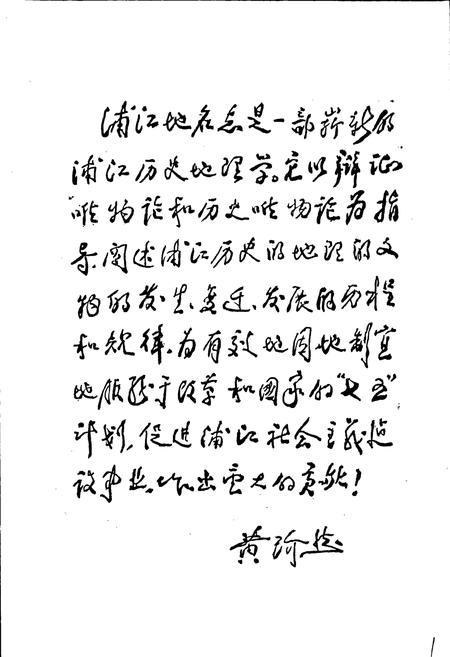 浦江地名志是一部崭新的
浦江历史地理学。它以辩证
唯物论和历史唯物论为指
导,阐述浦江历史的地理的文
物的发生、变迁、发展的历程
和规律,为有效地因地制宜
地服务于改革和国家的"七五"
计划,促进浦江社会主义建
设事业,作出重大的贡献!
黄珍
1